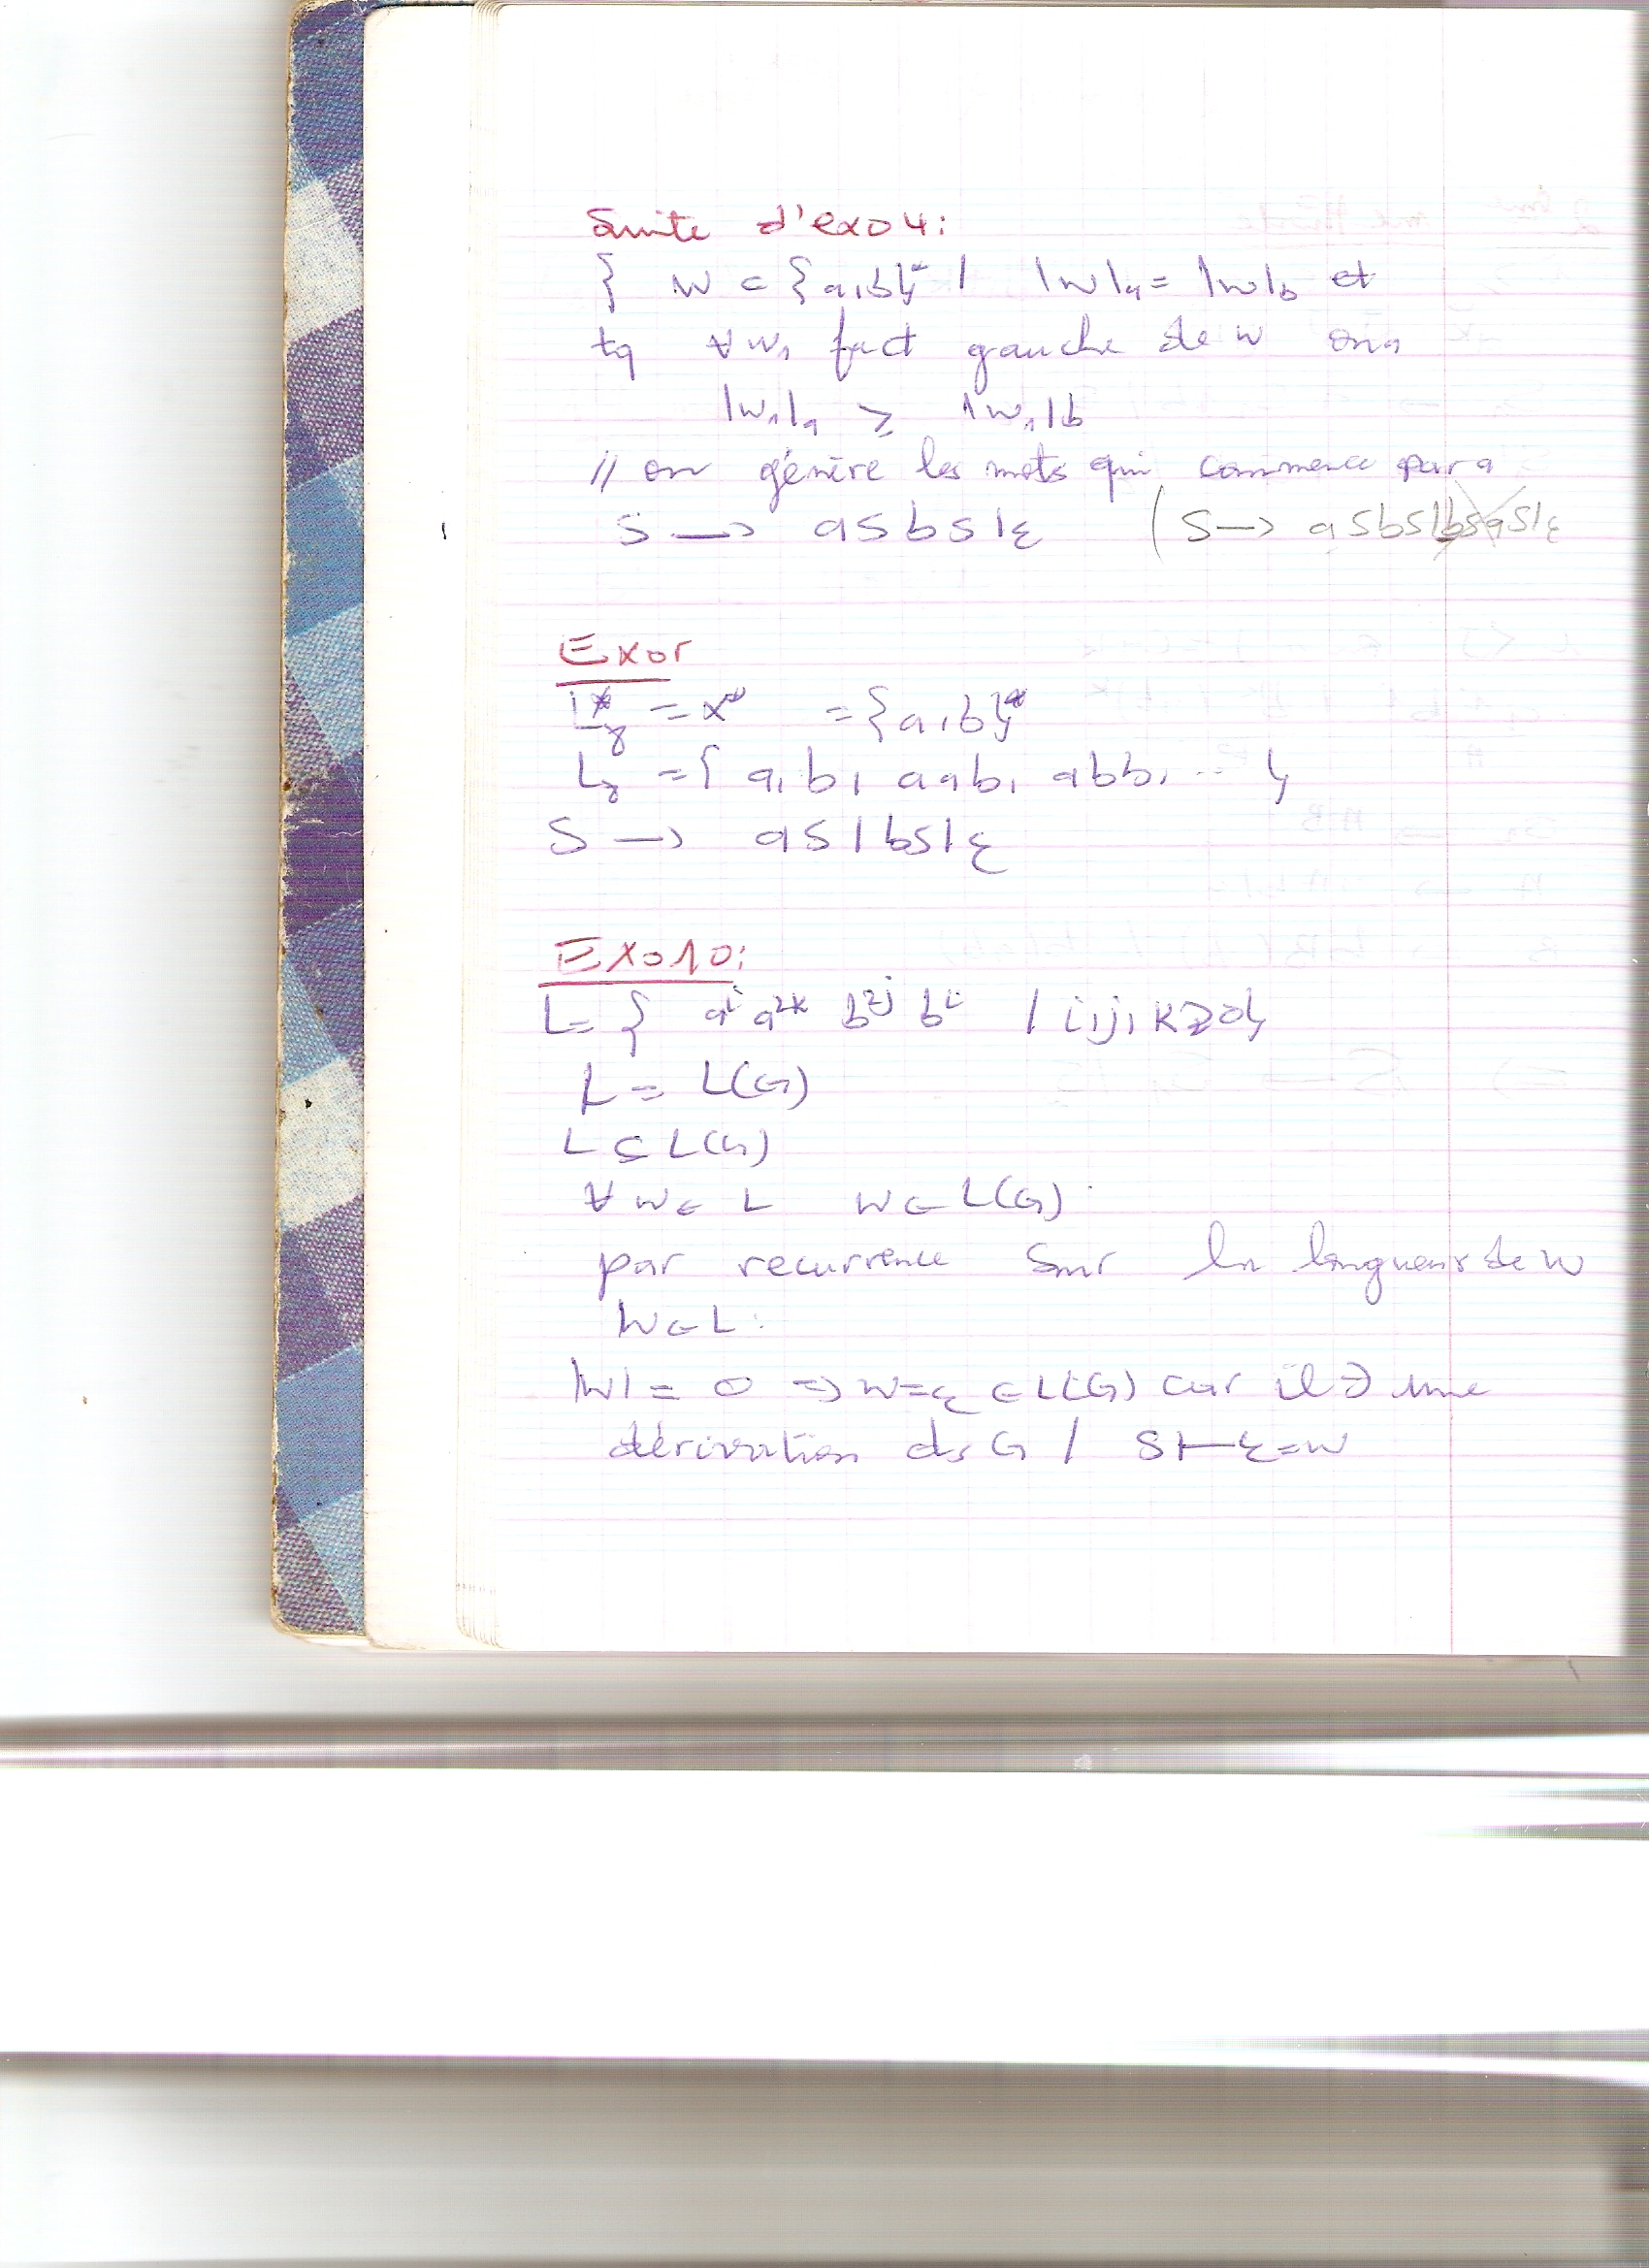 Suite d'exo4:
{ w ∈ {a,b}* / |w|a = |w|b et
tq ∀ w1 fact gauche de w on a
|w1|a ≥ |w1|b
// on génère les mots qui commence par a
S → aSbS|ε (S → aSbS|bSaS|ε
Exo5
= {a,b}*
= { a, b, aab, abb, ... }
S → aS|bS|ε
Exo10:
L = { a^i a^2k b^2j b^i / i,j,k≥0}
L = L(G)
L ⊆ L(G)
∀ w ∈ L w ∈ L(G)
par recurrence sur la longueur de w
w ∈ L:
|w| = 0 ⇒ w=ε ∈ L(G) car il ∃ une
dérivation ds G / S ⊢ ε=w